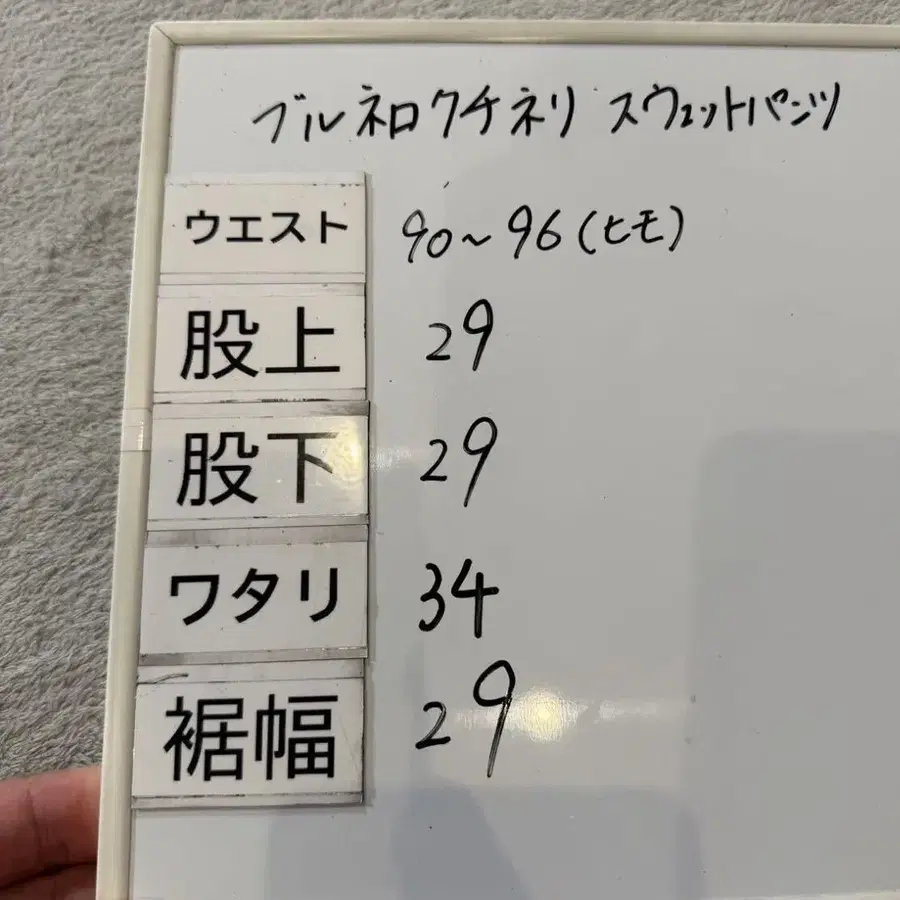 ブルネロクチネリ スウェットパンツ
ウエスト 90~96(ヒモ)
股上 29
股下 29
ワタリ 34
裾幅 29